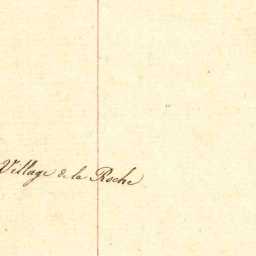 Village de la Roche